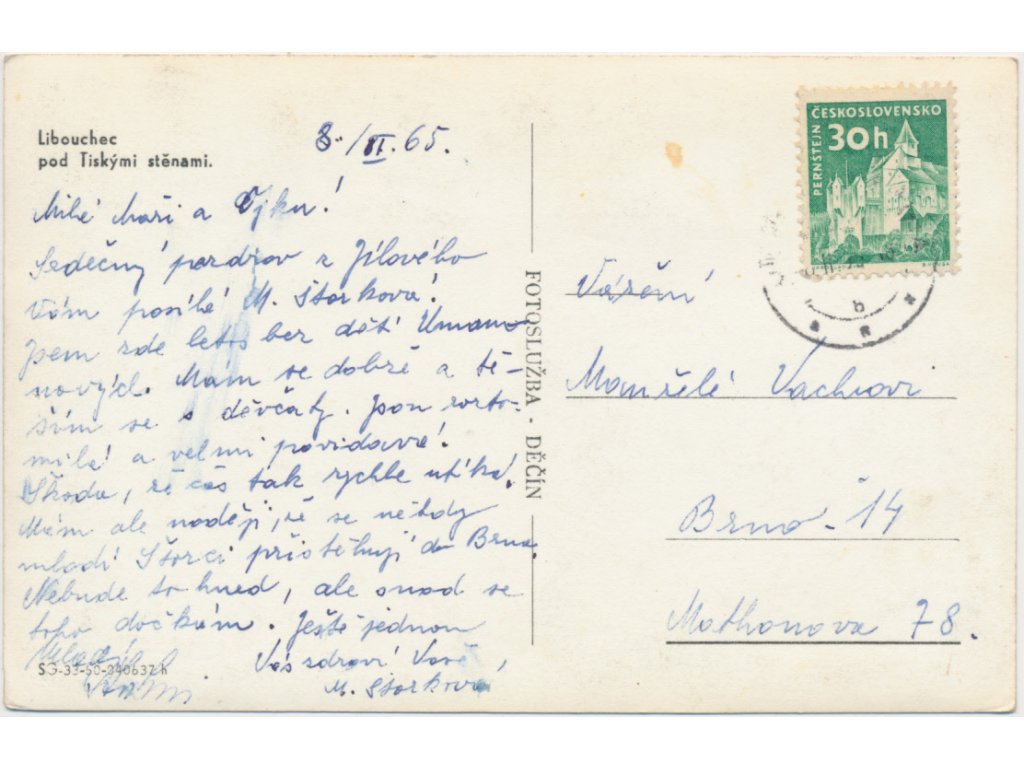 Libouchec
pod Tiskými stěnami.
8./II. 65.
Milé Maři a
Srdečný pozdrav z Jílového
Vám posílá M. Štorková!
Jsem zde letos bez dětí Umano-
nových. Mám se dobře a tě-
ším se s děvčaty. Jsou rozto-
milé a velmi povídavé!
Škoda, že čas tak rychle utíká.
Mám ale naději, že se někdy
mladí Štorci přistěhují do Brna.
Nebude to hned, ale snad se
toho dočkám. Ještě jednou
Vás zdraví Vaše
M. Štorková
SG-33-60-040632 h
FOTOSLUŽBA - DĚČÍN
ČESKOSLOVENSKO
30h
PERNŠTEJN
b
Vážení
Manželé Vachovi
Brno - 14
Mathonova 78.